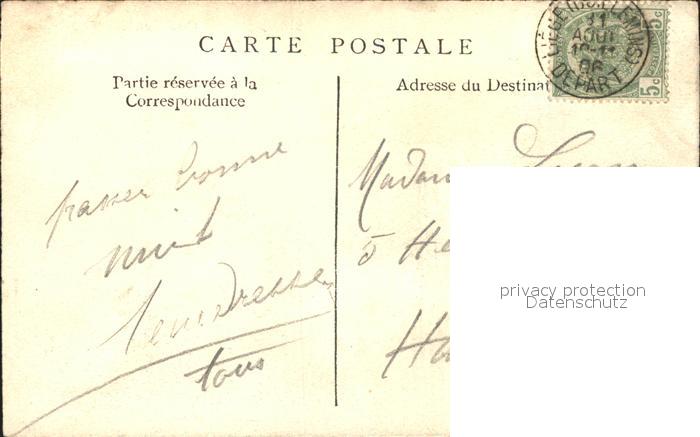 CARTE POSTALE
Partie réservée à la
Correspondance
Adresse du Destinat
LIÉGE (GUILLEMINS)
31
AOUT
06
DEPART
5c
5c
passer bonne
nuit
tendresse
tous
Madam
5 He
Ha
privacy protection
Datenschutz